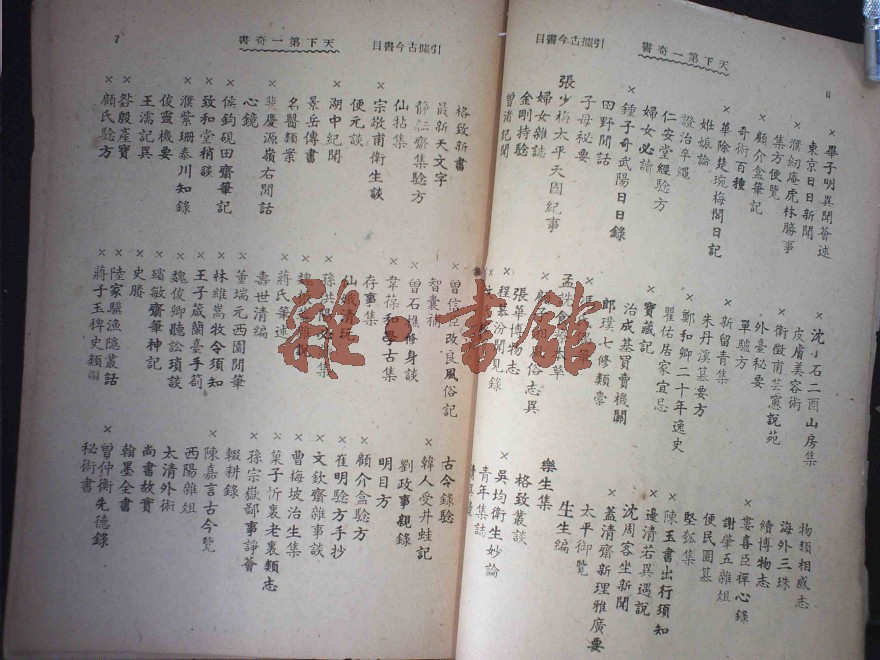 天下第一奇書
引據古今書目
×畢子明異聞薈述
東京日日新聞
×濮紉庵虎林勝事
集方便覽
×顧介盦筆記
奇術百種
×華除楚琬梅閣日記
姙娠論
證治準繩
×仁安堂經驗方
婦女必讀
×鍾子奇武陽日日錄
田野閒話
子母祕要
張少梅太平天國紀事
婦女雜誌
金剛持驗
×沈小石二酉山房集
皮膚美容術
×衛徵甫芸窻說苑
外臺秘要
單驢方
×新留青集
朱丹溪墓要方
×鄭和卿二十年逸史
瞿佑居家宜忌
×寶藏記
治成基買賣機關
郎瑛七修類稾
張華博物志
×程慕汾聞見錄
物類相感志
海外三珠
續博物志
×婁喜臣禪心錄
謝肇五雜俎
便民圖纂
堅瓠集
×陳玉書出行須知
×邊清若異遇說
沈周客坐新聞
×蓋清齋新理雅廣要
太平御覽
生生編
樂生集
格致叢談
×吳均衛生妙論
青年集誌
天下第一奇書
引據古今書目
7
格致新書
最新天文字
×靜紜齋集驗方
仙帖集
×宗敬甫衛生談
便元談
×湖中紀聞
景岳傳書
名醫類案
×裴慶源嶺右閒話
心鏡
×侯鈞硯田齋筆記
×致和堂稍談
×濮紫珊泰川知錄
俊靈機要
王濡記異
×昝殷產寶
×顧氏驗方
×曾信臣改良風俗記
智囊補
×曾石樵修身談
×韋葆和學古集
存事集
×蔣氏筆述
壽世清編
×董瑞元西園閒筆
×林維嵩牧令須知
×王子葳蘭臺手劄
×魏俊卿聽訟瑣談
×繽敏齋筆神記
×史勝
×陸家驥漁隱叢話
×蔣子玉稗史類編
古今錄驗
×韓人受井蛙記
劉政事親錄
明目方
×顧介盦驗方
×崔明驗方手抄
×文欽齋雜事談
×曹梅坡治生集
×菓子忻裏老裏類志
×孫宗嶽鄙事諍薈
輟耕錄
×陳嘉言古今覽
西陽雜俎
太清外術
尚書故實
翰墨全書
×曾仲衛先德錄
秘術書
雜·書館